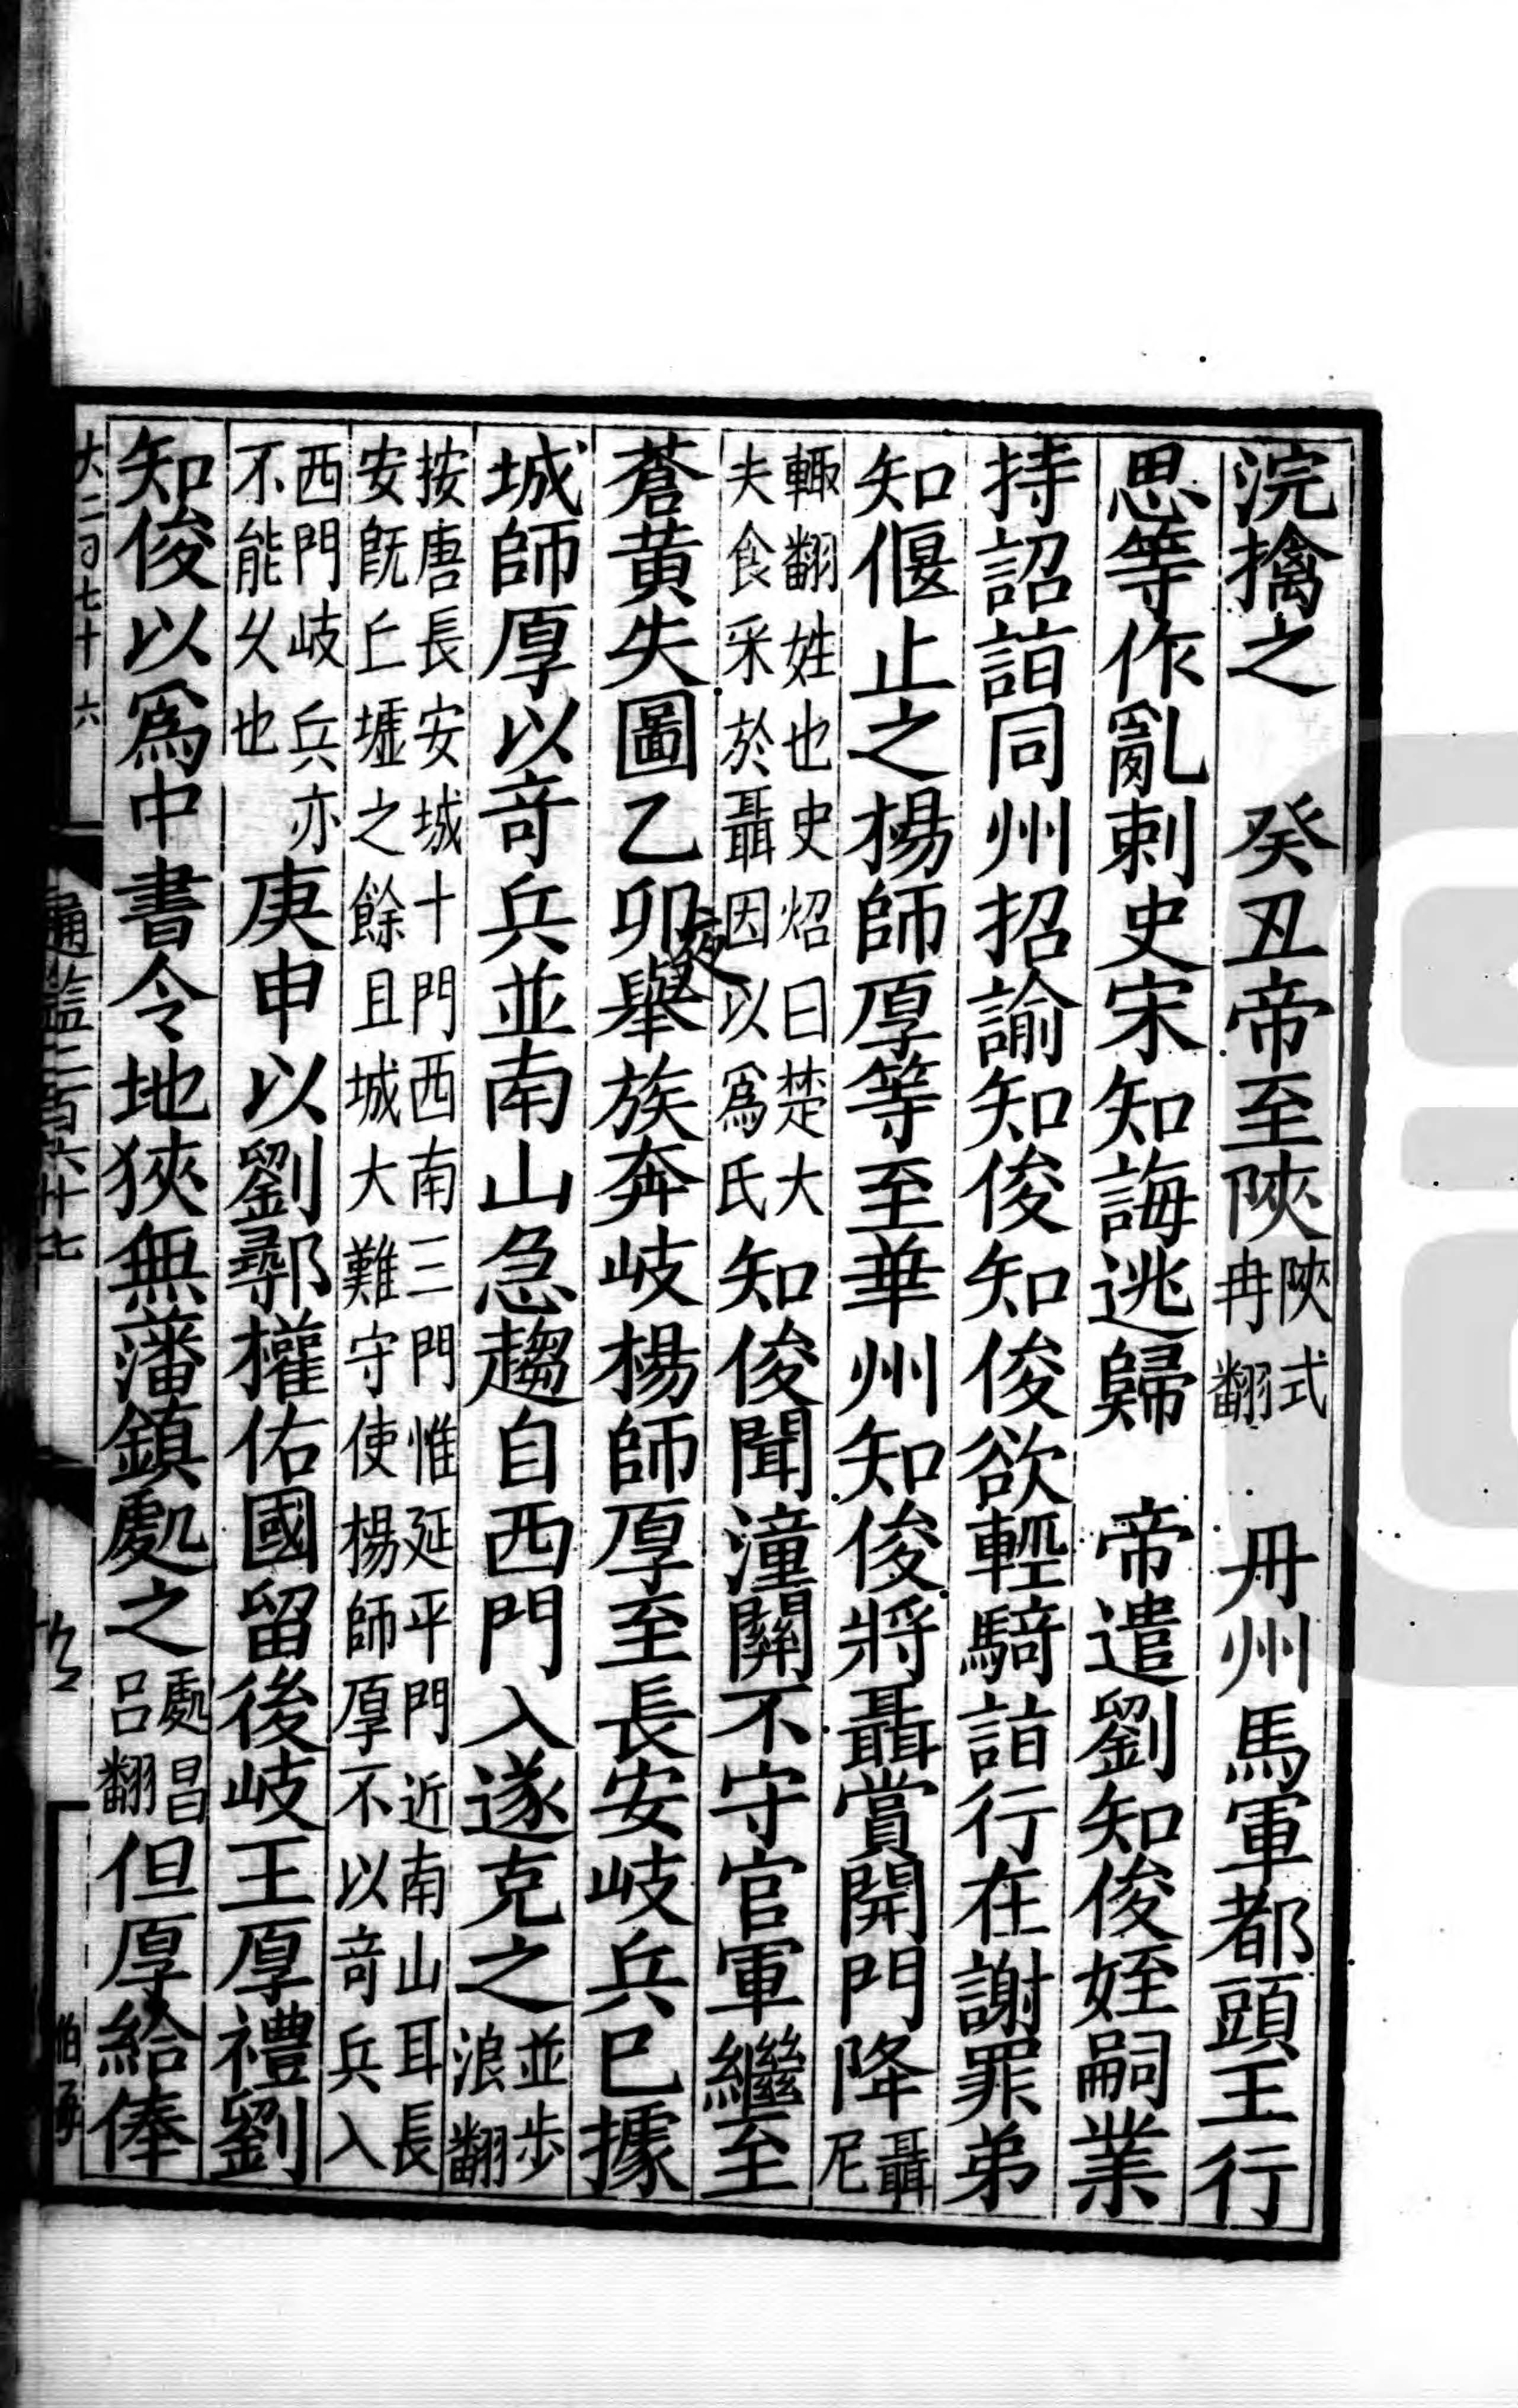 浣擒之　癸丑帝至陜陜式冉翻　丹州馬軍都頭王行
思等作亂刺史宋知誨逃歸　帝遣劉知俊姪嗣業
持詔詣同州招諭知俊知俊欲輕騎詣行在謝罪弟
知偃止之楊師厚等至華州知俊將聶賞開門降聶尼
輙翻姓也史炤曰楚大夫食采於聶因以爲氏知俊聞潼關不守官軍繼至
蒼黃失圖乙卯夜舉族奔岐楊師厚至長安岐兵已據
城師厚以竒兵並南山急趨自西門入遂克之並步浪翻
按唐長安城十門西南三門惟延平門近南山耳長安旣丘墟之餘且城大難守使楊師厚不以竒兵入
西門岐兵亦不能乆也庚申以劉鄩權佑國留後岐王厚禮劉
知俊以爲中書令地狹無藩鎮處之處昌呂翻但厚給俸
大二百七十六　通鑑二百六十七